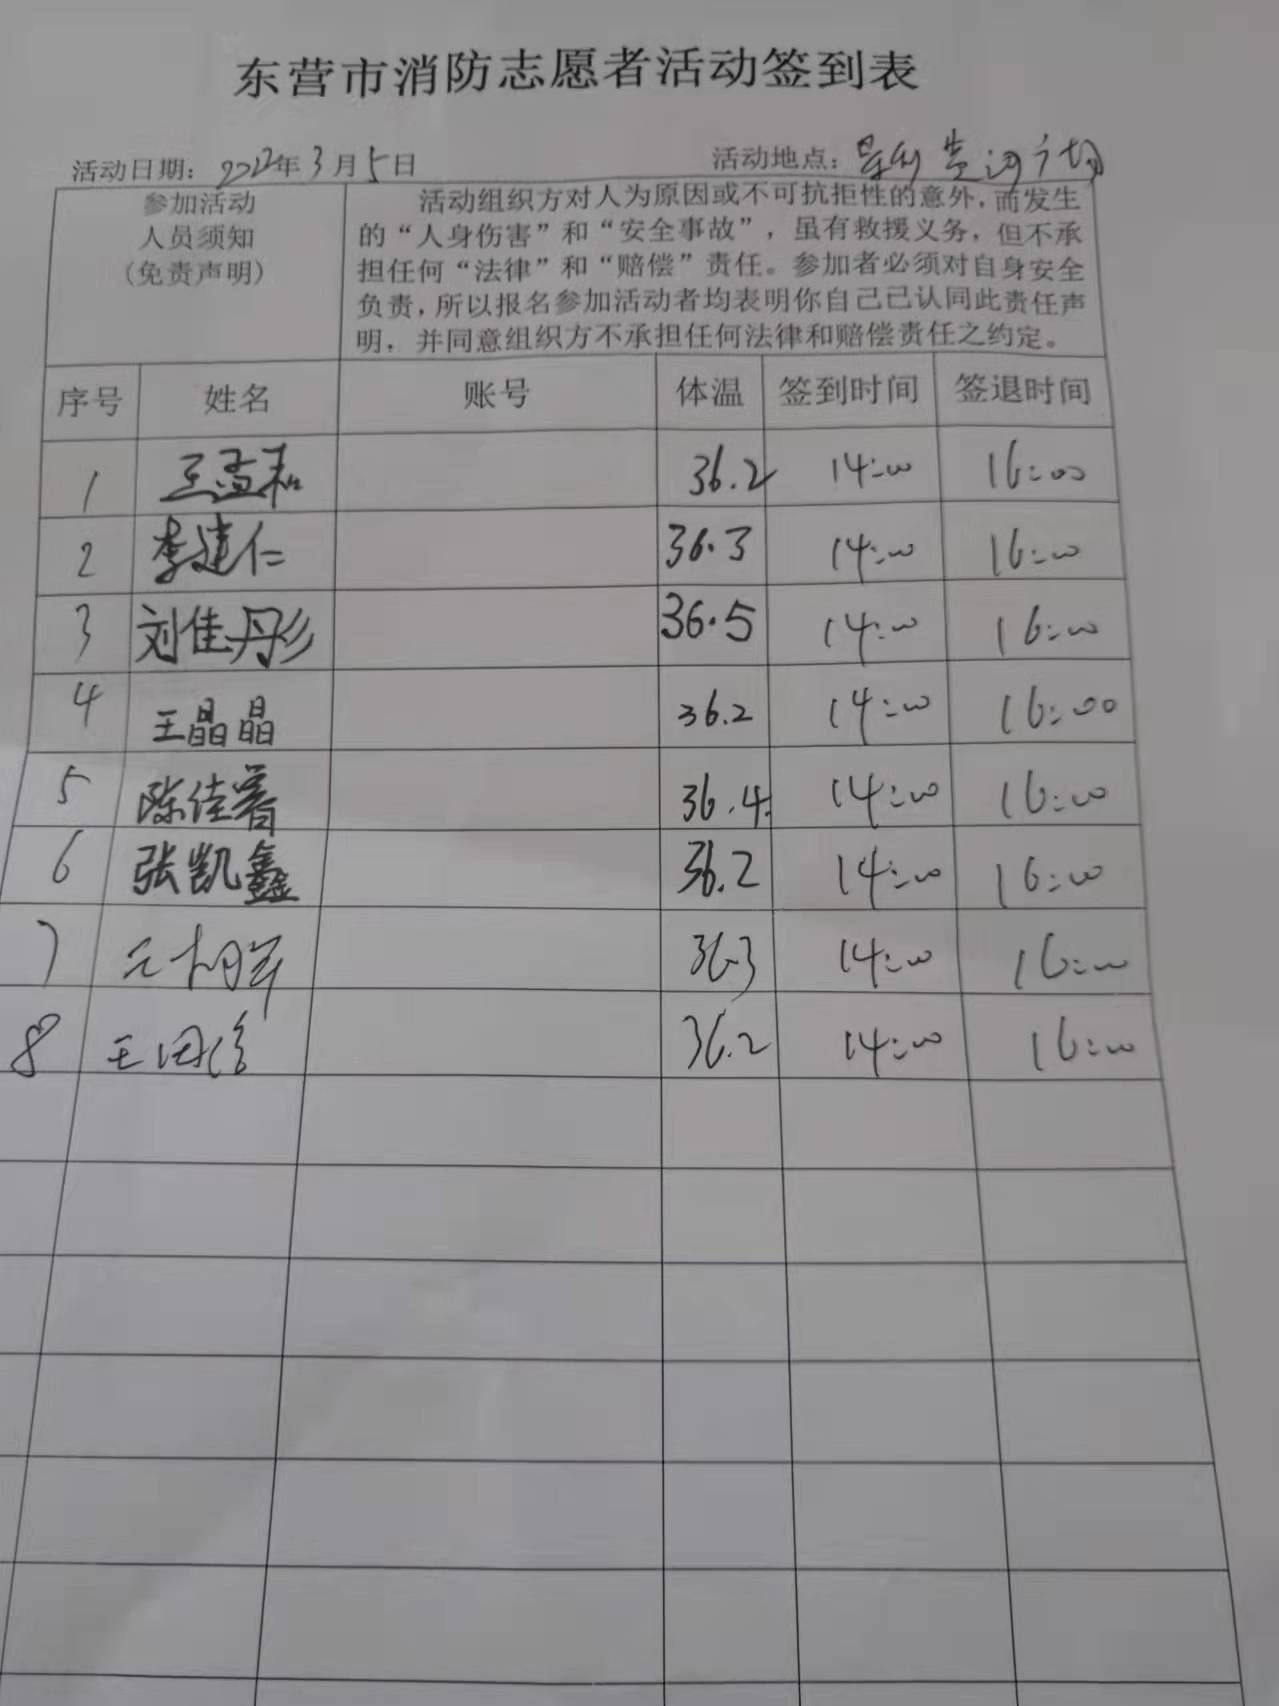 东营市消防志愿者活动签到表
活动日期：2022年3月5日 活动地点：黄河广场
参加活动
人员须知
（免责声明）
活动组织方对人为原因或不可抗拒性的意外，而发生
的“人身伤害”和“安全事故”，虽有救援义务，但不承
担任何“法律”和“赔偿”责任。参加者必须对自身安全
负责，所以报名参加活动者均表明你自己已认同此责任声
明，并同意组织方不承担任何法律和赔偿责任之约定。
序号 姓名 账号 体温 签到时间 签退时间
1 王孟和 36.2 14:00 16:00
2 李建仁 36.3 14:00 16:00
3 刘佳彤 36.5 14:00 16:00
4 王晶晶 36.2 14:00 16:00
5 陈佳睿 36.4 14:00 16:00
6 张凯鑫 36.2 14:00 16:00
7 36.3 14:00 16:00
8 王 36.2 14:00 16:00